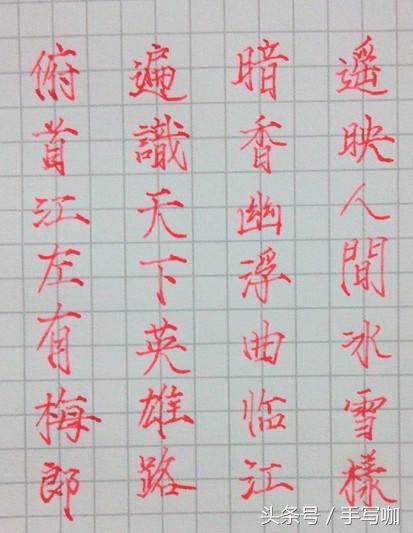 遥映人間冰雪樣
暗香幽浮曲临江
遍識天下英雄路
俯首江左有梅郎
头条号 / 手写咖